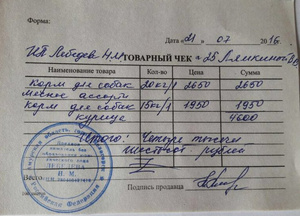 Форма:
Дата «21» 07 2016г.
ИП Лебедев Н.М. ТОВАРНЫЙ ЧЕК № 25
Наименование товара Кол-во Цена Сумма
Корм для собак 20кг/1 2650 2650
мясное ассорти
Корм для собак 15кг/1 1950 1950
курица 4600
Итого: Четыре тысячи
шестьсот рублей
Всего:
Подпись продавца